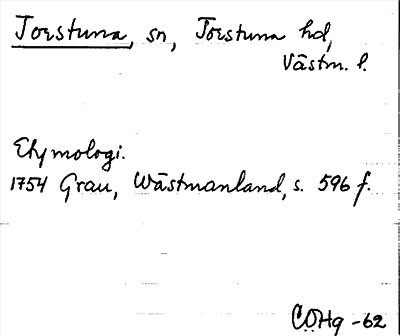 Torstuna, sn, Torstuna hd,
Västm. l.
Etymologi.
1754 Grau, Wästmanland, s. 596 f.
CÖHg -62